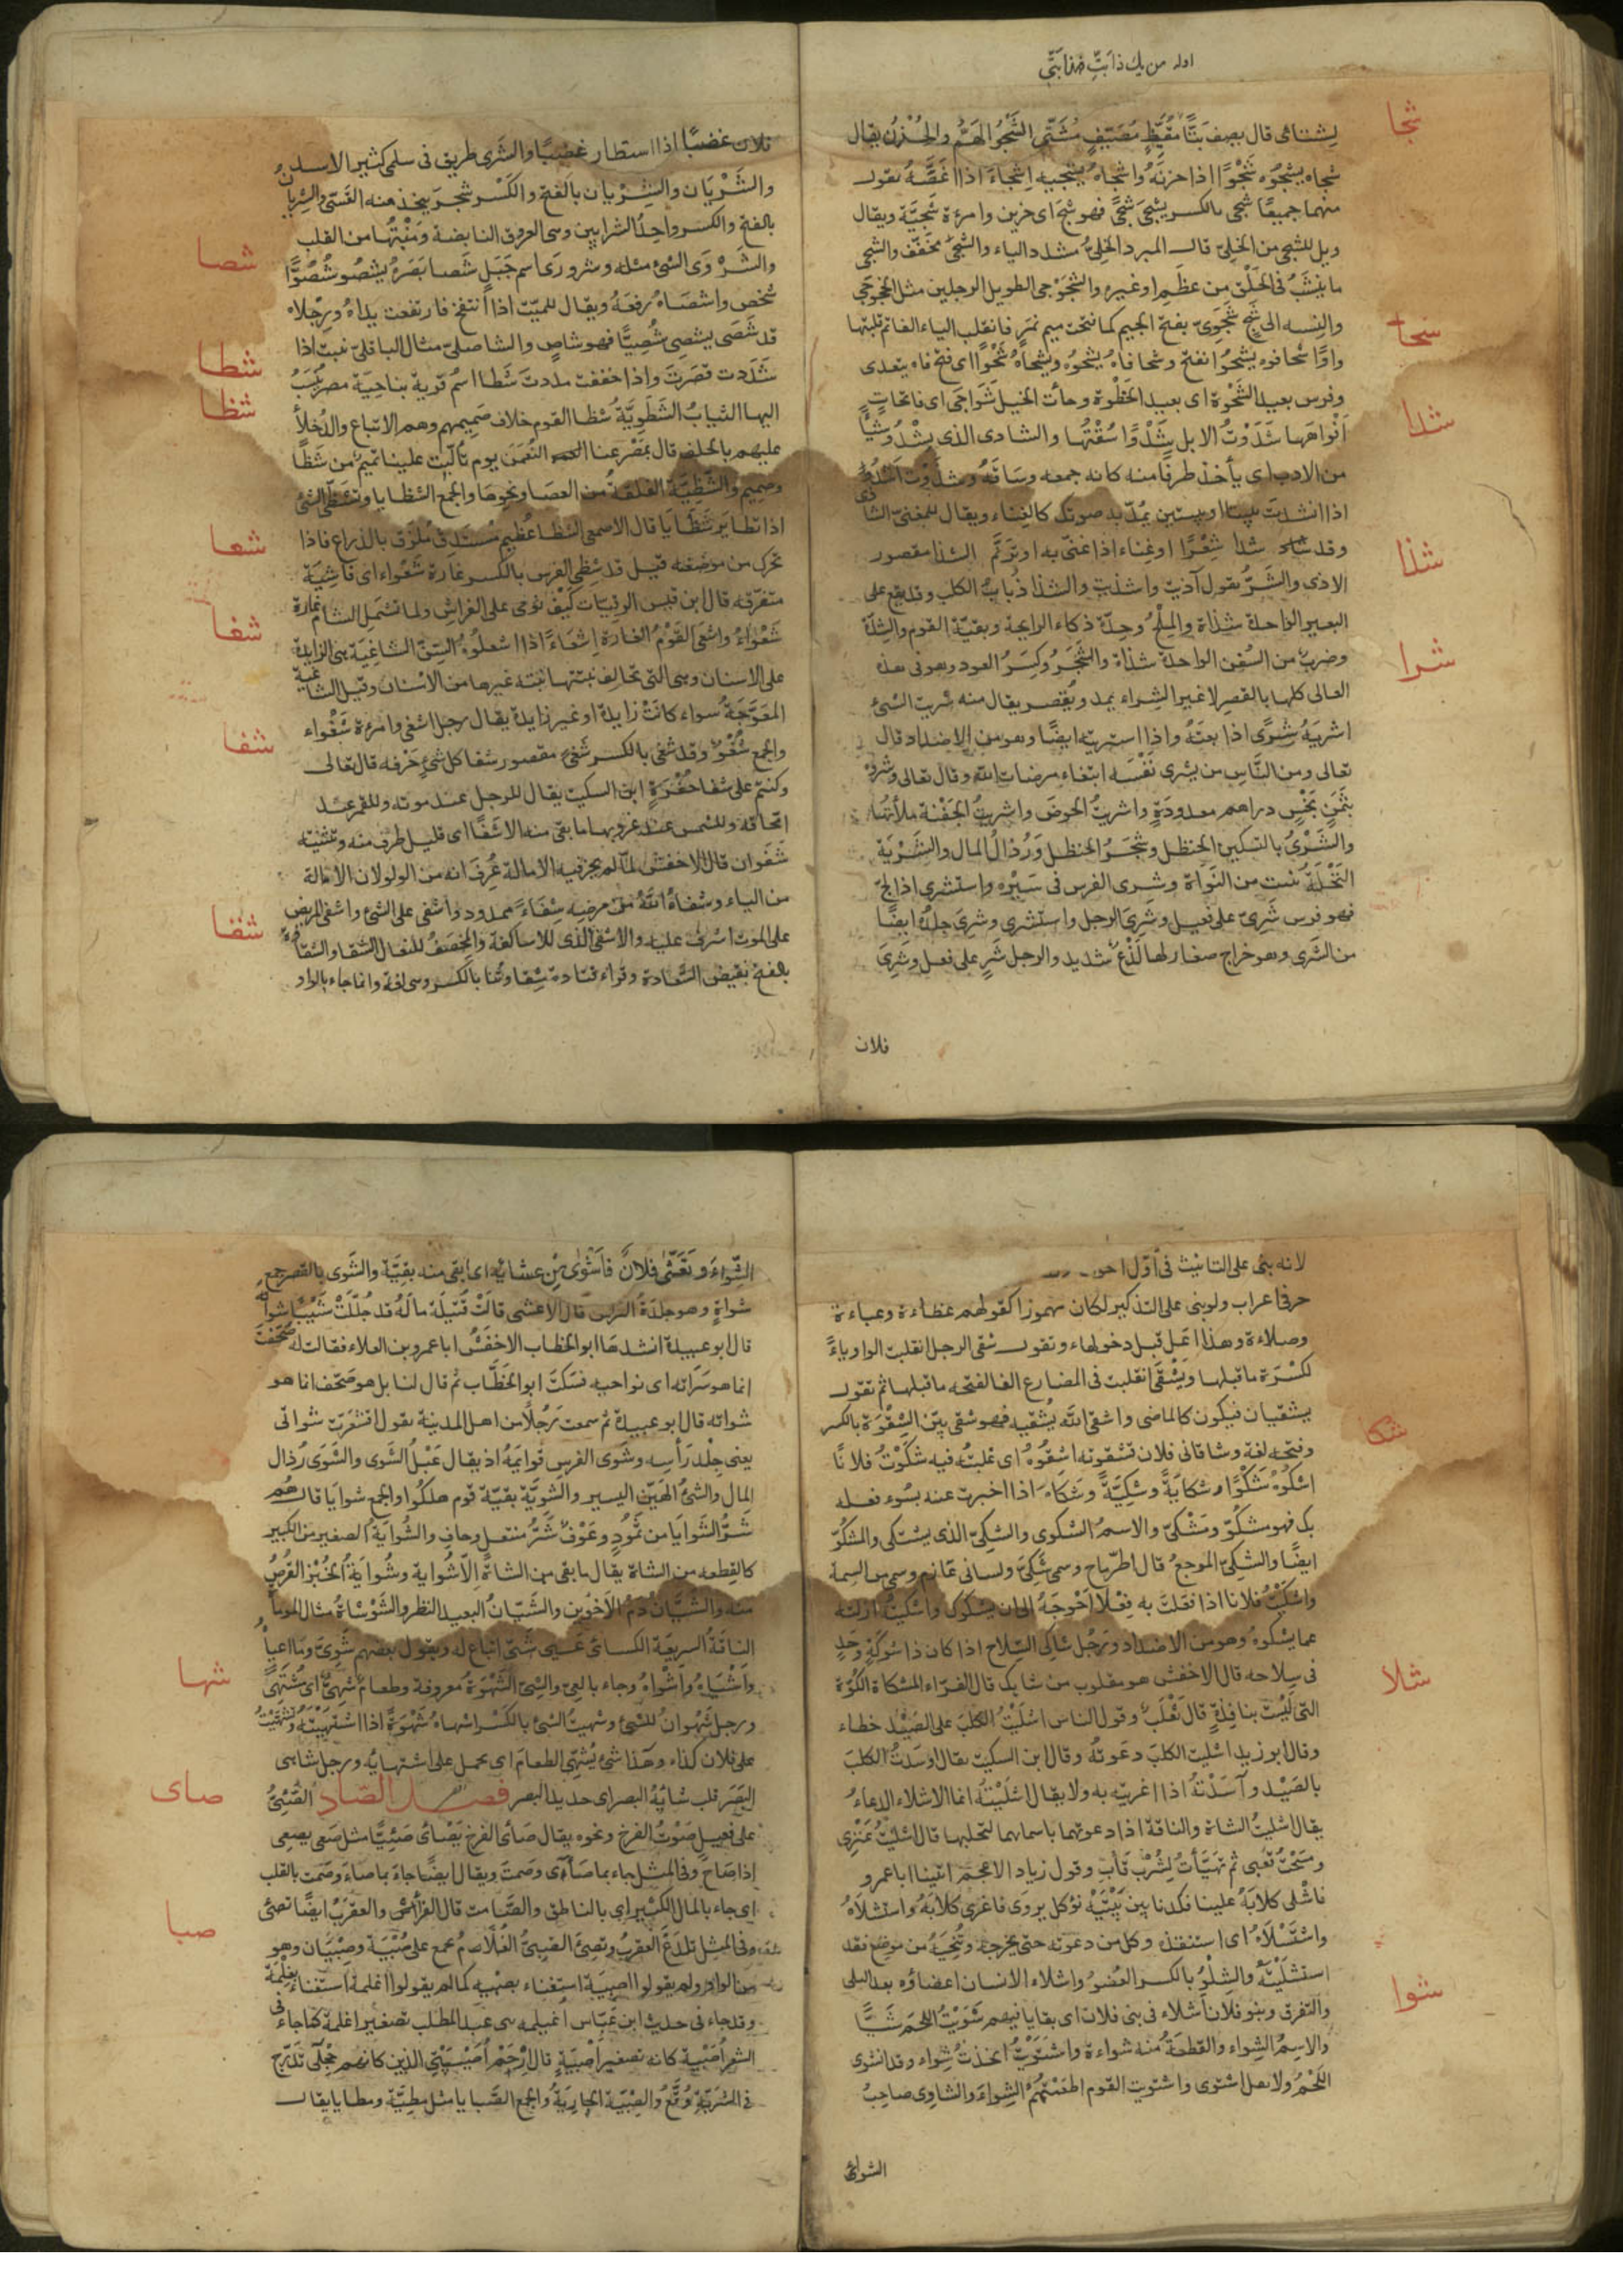 اوله من يك ذا بتّ فهذا بتّي
شجا
لِشتائى قال يصف بَتًّا مُقَيِّظٍ مُصَيِّفٍ مُشَتّى الشَّجْوُ الهَمُّ والحُزْنُ يقال
شجاه يشجُوُه شَجْوًا اذا حزنَهُ واشجاهُ يشجيه اِشجاءً اذا اغصَّهُ تقول
منهما جميعًا شجى بالكسر يشجَى شجًى فهو شجٍ اى حزين وامرءة شجيَة ويقال
ويل للشجى من الخلىّ قال المبرد الخلىُّ مشدد الياء والشجى مخفّف والشجى
ما ينشَبُ فى الحَلْق مِن عظمٍ او غيره والشجَوْجى الطويل الرجلين مثل الخجوجى
شحا
والنسبه الى شجٍ شَجَوِىّ بفتح الجيم كما فتحت ميم نمرٍ فانقلب الياء الفا ثم قلبتها
واوًا شحا فوه يشحُوا انفتح وشحا فاهُ يشحُوُه ويشحاهُ شَحْوًا اى فتح فاه يتعدى
وفرس بعيد الشَحْوة اى بعيد الخَطْوة وجأت الخيل شَوَاحِى اى فاتحاتٍ
شدا
اَفْواهَها شَدَوْتُ الابل شَدْوًا سُقْتُها والشادى الذى يشْدُو شيًّا
من الادب اى يأخذ طرفًا منه كانه جمعه وسَاقَهُ وشدَوْت اَشْدُو
اذا انشدت بيتا او بيتين يُمدّ به صوتك كالغِناء ويقال للمغنّى الشادى
شذا
وقد شدا شِعْرًا او غِناء اذا غنّى به او ترنّم الشذا مقصور
الاذى والشَرُّ يقول آذيت واشذيت والشذا ذُبابُ الكلب وقد يقع على
البعير الواحدة شذاة والمِلْحُ وحِدّة ذكاء الرايحة وبقيّة القوم والشِدّة
شرا
وضربٌ من السُفن الواحدة شذاة والشَجَر وكِسَرُ العود وهو فى هذه
المعانى كلها بالقصر لا غير الشِراء يمد ويُقصر يقال منه شريت الشئ
اشريَهُ شِرًى اذا بعتَهُ واذا اشتريته ايضًا وهو من الاضداد قال
تعالى ومن النَّاسِ من يشرى نَفْسَه ابتغاء مرضات الله وقال تعالى وشروْهُ
بِثَمَنٍ بَخْسٍ دراهم معدودَةٍ واشريتُ الحوضَ واشريتُ الجَفْنة ملأتُها
والشَّرْىُ بالتسكين الحنظل وشَجَرُ الحنظل ورُذَالُ المال والشَّرْيَة
النَّخْلَةُ تنبت من النَواة وشرى الفرس فى سَيْرِه واستشرى اذا لجّ
فهو فرس شَرِىّ على فعيل وشَرِىَ الرجل واستشرى وشرِىَ جِلدُهُ ايضًا
من الشَرى وهو خراج صغار لها لَذْعٌ شديد والرجل شَرٍ على فعلٍ وشَرِىَ
فلان
فلان غضبًا اذا استطار غضبًا والشَرى طريق فى سلمى كثير الاسد
والشَّرْيَان والشِرْيان بالفتح والكَسْر شجر يتخذ منه القَسّى والشريان
بالفتح والكسر واحِدُ الشرايين وهى العروق النابضة ومَنْبَتُها من القلب
شصا
والشَرْوَى الشئ مثله وشرورَى اسم جَبَل شَصا بَصَرُهُ يشصُو شُصُوًّا
شخص واشصَاهُ رفعَهُ ويقال للميّت اذا انتفخ فارتفعت يداهُ ورِجْلاه
قد شَصَى يشصِى شُصِيًّا فهو شاصٍ والشاصلىّ مثال الباقلىّ نبت اذا
شطا
شدّدت قصَرت واذا خففت مددت شَطا اسمُ قرية بناحِيَة مصر يُنسَبُ
شظا
اليها الثيابُ الشَطَوِيَّة شظا القوم خلاف صَمِيمهم وهم الاتباع والدُخلأ
عليهم بالحلف قال بمصْرَعنا النُعْمَن يوم تألّبَت علينا تميمٌ من شَظًا
وصَمِيم والشَظِيَّة الفلقَةُ من العصَا ونحوها والجمع الشظايا وتشَظّى الشئ
شعا
اذا تطايَر شَظَايَا قال الاصمعى الشظا عُظَيم مُسْتَدِق مُلزَق بالذراع فاذا
تحرك من موضعه قيل قد شظِىَ الفرس بالكسر غارة شَعْواء اى فاشِيَة
متفرّقه قال ابن قيس الرقيات كَيْفَ نَومى على الفراش ولما تشمَل الشام غارة
شغا
شَعْواءُ واشعَى القَوْمُ الغارة اِشعاءً اذا اشعلُوهُ السِّنّ الشاغِيَة هى الزايدة
على الاسنان وهى التى تخالِف نبتتها نبتة غيرها من الاسنان وقيل الشاغية
شفا
المُعَوَّجَةُ سواء كانَتْ زايدة او غير زايدة يقال رجل اشغى وامرءة شَغْواء
والجمع شُغْوٌ وقد شغِى بالكسر شَغًى مقصور شفا كل شئٍ حَرْفه قال تعالى
وكنتم على شفا حُفْرَةٍ ابن السكيت يقال للرجل عند موته وللقمر عند
امّحاقه وللشمس عند غروبها ما بقى منه الا شَفًا اى قليل طرف منه وتثنيته
شَفَوان قال الاخفش لمّا لم يجز فيه الامالة عُرِفَ انه من الواو لان الامالة
شقا
من الياء وشفاهُ اللهُ مِنْ مرضِه شِفاءً ممدود واشفى على الشئ واشفى المريض
على الموت اشرف عليه والاشفى الذى للاساكفة والمِخصَفُ للنعال الشقا والشقاوة
بالفتح نقيض السَّعادة وقراء قتادة شِقاوتُنا بالكسر وهى لغة وانما جاء بالواو
لانه بنى على التانيث فى اوّل
حرف اعراب ولو بنى على التذكير لكان مهموزا كقولهم عظاءة وعباءة
وصلاءة وهذا اعلّ قبل دخول هاء وتقول شقى الرجل انقلبت الواو ياءً
لكَسْرَة ما قبلها ويَشْقَى انقلبت فى المضارع الفا لفتحه ما قبلها ثم تقول
يشقيان فيكون كالماضى واشقاهُ اللّٰه يُشقيه فهو شقى بيّن الشِقْوَة بالكسر
شكا
وفتحه لغة وشاقانى فلان فشقوته اشقُوُهُ اى غلبتُه فيه شكَوْتُ فلانًا
اشكُوهُ شَكْوًا وشكايَةً وشكِيَّةً وشَكَاة اذا اخبرت عنه بسُوء فعله
بك فهو مشكُوّ ومَشْكىّ والاسمُ الشكوى والشكِىّ الذى يشتكى والمشكوّ
ايضًا والشكِىّ الموجعُ قال الطِرّماح وسمى شَكِىّ ولسانى عَارِم وسمى من السِمة
واشكَيْتُ فلانا اذا فعَلتَ به فِعْلًا اَحْوَجَهُ الى ان يشكوك واشكيتُ ازلته
عما يشكوه وهو من الاضداد ورَجُل شاكِى السِّلاح اذا كان ذا شوكةٍ وحَدٍ
شلا
فى سِلاحه قال الاخفش هو مقلوب من شايك قال الفَرّاء المشكاة الكُوّة
التى ليْسَت بنافِذةٍ قال ثَعْلَبٌ وقول الناس اشلَيْتُ الكلبَ على الصَيْد خطاء
وقال ابو زيد اشليت الكلبَ دعَوتُهُ وقال ابن السكيت يقال اوسدتُ الكلبَ
بالصَيْد وآسَدْتُهُ اذا اغريته به ولا يقال اشلَيْتُهُ انما الاشلاء الدعاءُ
يقال اشليتُ الشاة والناقة اذا دعوتهما باسمائهما لتحلبها قال اشليتُ عَنْزِى
ومسَحْتُ قَعْبى ثم تهيّأتُ لِشُرْب قأب وقول زياد الاعجم اتينا ابا عمرو
فاشْلى كلابَهُ علينا فكدنا بين بَيْتَيْهِ نؤكل يروَى فاغرى كلابَهُ واستشلاهُ
واشْتَلاهُ اى استنقذه وكل من دعوته حتى يخرجه وتُنجِيَهُ من موضع فقد
شوا
استشلَيْتَهُ والشِلْوُ بالكسر العُضوُ واشلاء الانسان اعضاؤه بعد البلى
والتفرق وبنو فلان اشلاء فى بنى فلان اى بقايا فيهم شَوَيْتُ اللحمَ شيًّا
والاسمُ الشِواء والقطعَةُ منه شِواءة واشْتَوَيْتُ اتخذتُ شِواء وقد انشوى
اللَّحْمُ ولا تقل اشتوى واشتويت القوم اطعَمْتُهُم الشِواءَ والشاوِى صاحِبُ
الشواء
الشِّواءَ وتَعَشّى فلانٌ فاَشْوَى مِنْ عشائه اى ابقى منه بقيّة والشَوى بالقصر جمع
شواةٍ وهو جلدَةُ الراس قال الاعشى قالَتْ قُتَيْلَة مالَهُ قد جُلّلَتْ شَيْبًا شَوَاتُه
قال ابو عبيدة انشدها ابو الخطاب الاخفَشُ ابا عمرو بن العلاء فقالت له صَحّفتَ
انما هو سَرَاته اى نواحيه فسَكتَ ابو الخَطّاب ثم قال لنا بل هو صَحّف انما هو
شواته قال ابو عبيدة ثم سمعت رَجُلًا من اهل المدينة يقول اقشعَرّت شواتى
يعنى جِلْد رَأسِه وشَوَى الفرسِ قوايمَهُ اذ يقال عَبْلُ الشَوى والشَوَى رُذال
المال والشئُ الهَيّن اليسير والشَوِيَّة بقيّة قوم هلكُوا والجمع شوايَا قال هُم
شَرُّ الشَوايَا من ثَمُودٍ وعَوْفٌ شَرُّ منتعل وحافٍ والشُوايَةُ الصغير من الكبير
كالقِطعه من الشاة يقال ما بقى من الشاة اِلّا شُواية وشُوايَةُ الخُبْز القُرصُ
منه والشَيَّانُ دَمُ الاَخوَين والشَيّانُ البعيد النظر والشَوْشاةُ مثال الموماة
الناقَةُ السريعَة الكسائى عَيِىّ شَيِىّ اتباع له ويقول بعضهم شَوِىّ وما اعياهُ
شها
وَاَشْيَاهُ واَشْواهُ وجاء بالعِىّ والشِىّ الشَهْوَة معروفة وطعامٌ شَهِىٌّ اى مُشْتَهًى
ورجل شَهْوانُ للشئ وشهيتُ الشئ بالكَسْر اشهاهُ شَهْوَةً اذا اشتهَيْتَه وتَشَهَّيْتُ
على فلان كذاء وهَذا شئٌ يُشَهّى الطعامَ اى يحمل على اشتهايِه ورجل شاهى
صاى
البَصَر قلب شايَهُ البصر اى حديد البصر فصل الصّاد الصّئِىُّ
على فعيل صَوْتُ الفرخ ونحوه يقال صَأى الفرخ يَصْأى صَئِيًّا مثل صَعَى يصعى
اِذا صَاحَ وفى المثل جاء بما صَأَى وصَمتَ ويقال ايضًا جاء بما صاءَ وصَمت بالقلب
صبا
اى جاء بالمال الكثير اى بالناطق والصَّامت قال الفرّاءُ والعقرَبُ ايضًا تصئى
وفى المثل تلدَغُ العقربُ وتصِئ الصَبِىُّ الغُلامُ يجمع على صِبْيَة وصِبْيَان وهو
من الواو ولم يقولوا اصبِيَة استغناء بصبيه كما لم يقولوا اغلمة استغناء بغِلْمَة
وقد جاء فى حديث ابن عَبّاس اغيلمه بنى عبد المطلب تصغير اغلمة كما جاء فى
الشعر اُصَيْبِيَة كانه تصغير اَصْبِيَةٍ قال اِرْحَمْ اُصَيْبِيَتِى الذين كانهم حِجْلَى تَدَرَّج
فى الشَرَبّة وُقَّعُ والصَبِيّة الجارِيَةُ والجمع الصَبايا مثل مطِيَّة ومطايا يقال